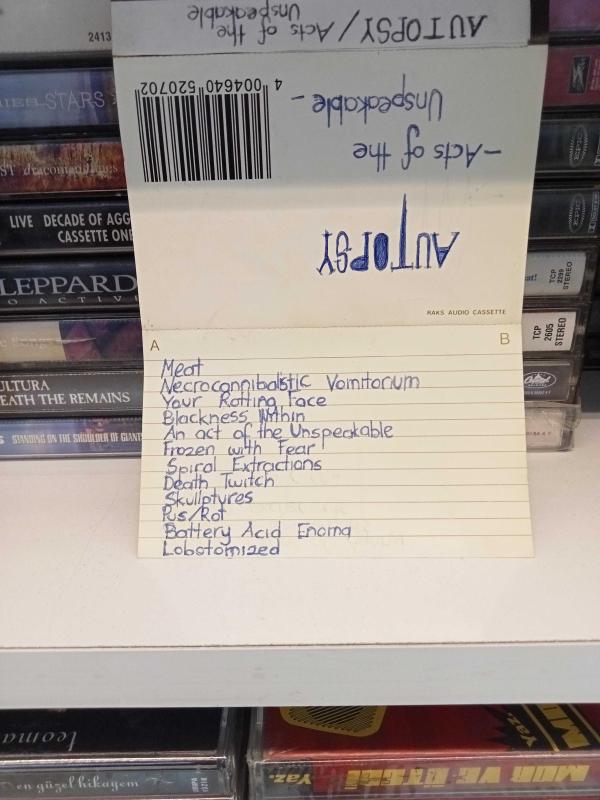 AUTOPSY / Acts of the
Unspeakable
4 004640 520702
- Acts of the
Unspeakable -
AUTOPSY
RAKS AUDIO CASSETTE
A
B
Meat
Necrocannibalistic Vomitorium
Your Rotting Face
Blackness Within
An act of the Unspeakable
Frozen with Fear
Spiral Extractions
Death Twitch
Skullptures
Pus/Rot
Battery Acid Enema
Lobotomized
2413
STARS
draconian times
LIVE DECADE OF AGG
CASSETTE ONE
LEPPARD
O ACTIVE
ULTURA
EATH THE REMAINS
STANDING ON THE SHOULDER OF GIANT
EPIC
EPIC
TCP
2299
STEREO
TCP
2605
STEREO
Capitol
leoma
en güzel hikayem
Yaz.
Yaz.